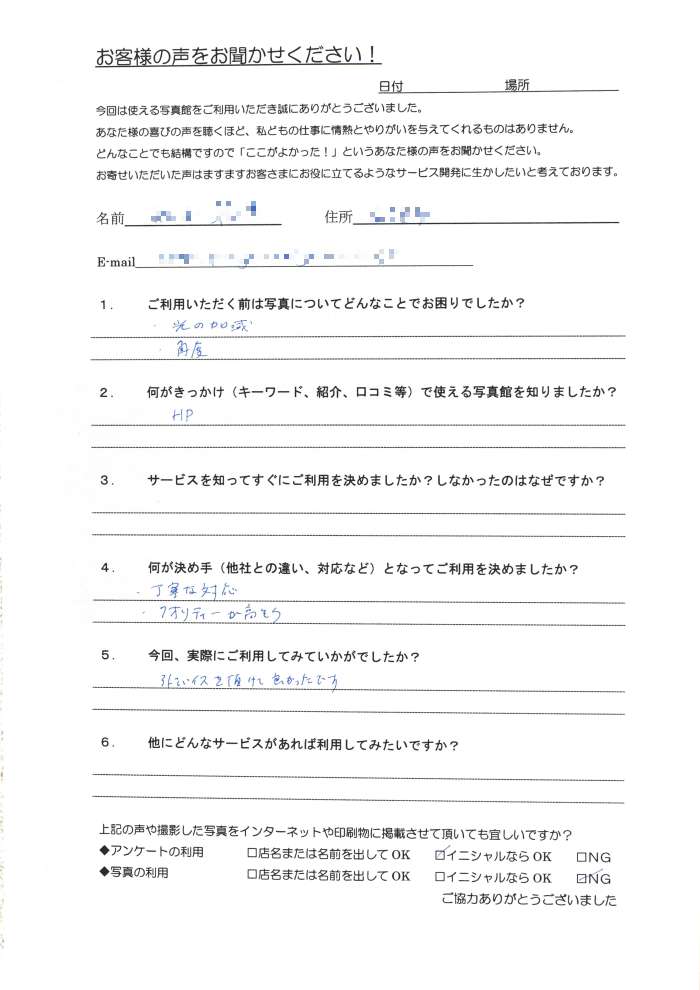 お客様の声をお聞かせください！
日付 場所
今回は使える写真館をご利用いただき誠にありがとうございました。
あなた様の喜びの声を聴くほど、私どもの仕事に情熱とやりがいを与えてくれるものはありません。
どんなことでも結構ですので「ここがよかった！」というあなた様の声をお聞かせください。
お寄せいただいた声はますますお客さまにお役に立てるようなサービス開発に生かしたいと考えております。
名前 住所
E-mail
１． ご利用いただく前は写真についてどんなことでお困りでしたか？
・光の加減
・角度
２． 何がきっかけ（キーワード、紹介、口コミ等）で使える写真館を知りましたか？
HP
３． サービスを知ってすぐにご利用を決めましたか？しなかったのはなぜですか？
４． 何が決め手（他社との違い、対応など）となってご利用を決めましたか？
・丁寧な対応
・クオリティーが高そう
５． 今回、実際にご利用してみていかがでしたか？
アドバイスを頂けて良かったです
６． 他にどんなサービスがあれば利用してみたいですか？
上記の声や撮影した写真をインターネットや印刷物に掲載させて頂いても宜しいですか？
◆アンケートの利用 □店名または名前を出してOK ☑イニシャルならOK □NG
◆写真の利用 □店名または名前を出してOK □イニシャルならOK ☑NG
ご協力ありがとうございました